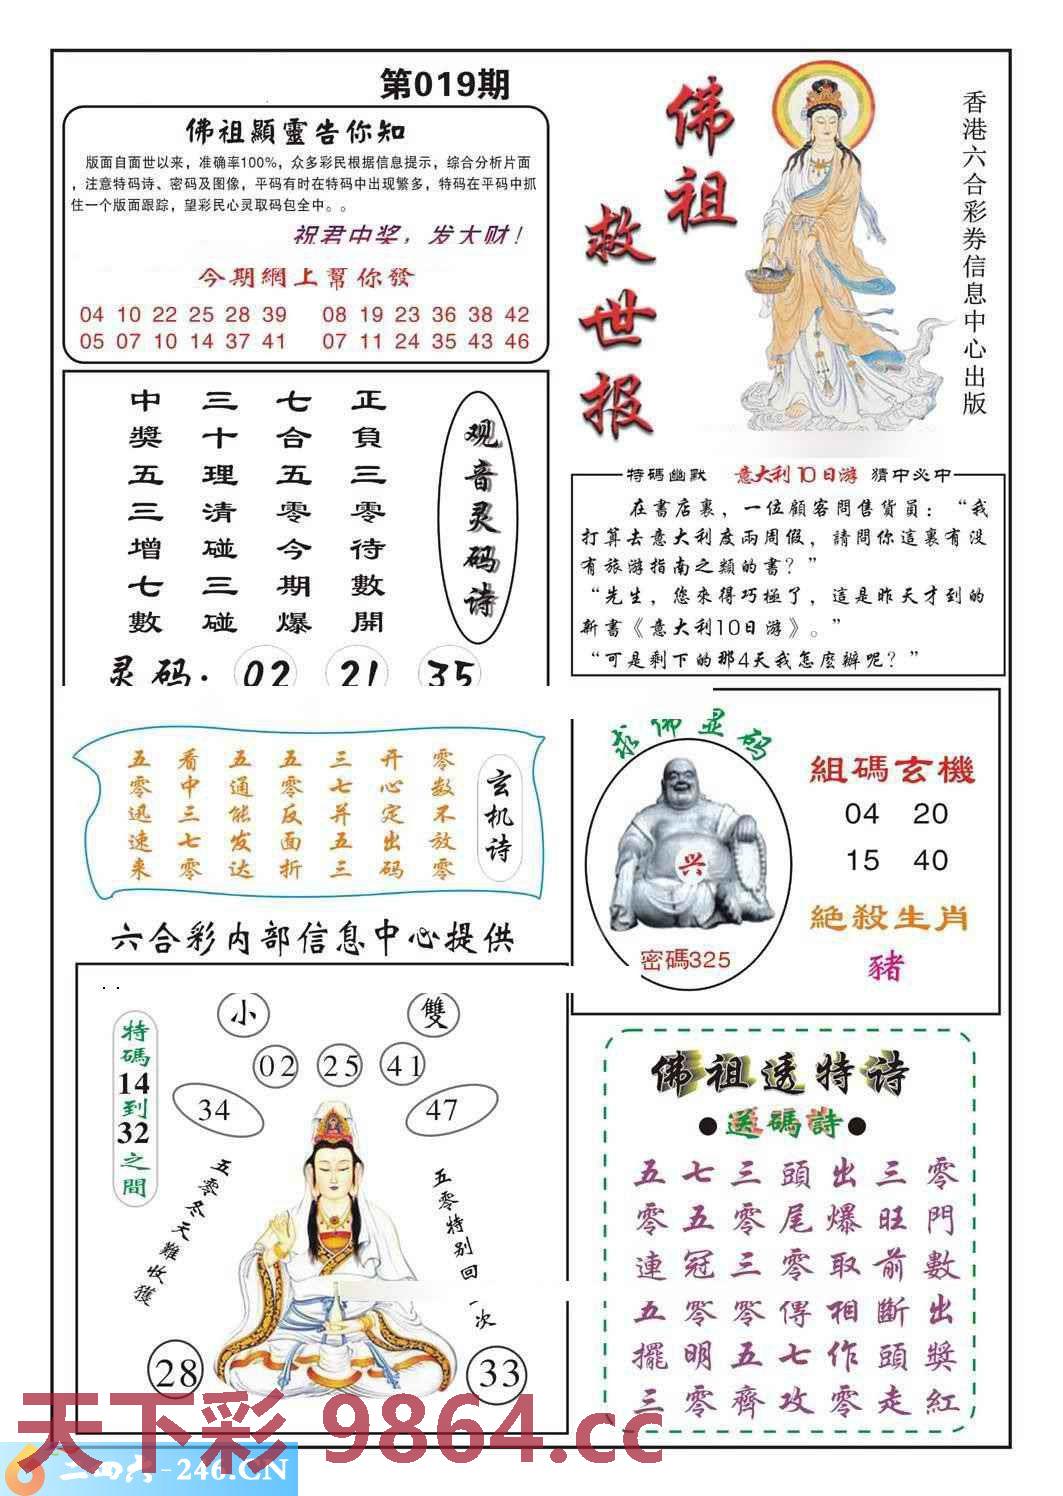 第019期
佛祖顯靈告你知
版面自面世以来，准确率100%，众多彩民根据信息提示，综合分析片面
，注意特码诗、密码及图像，平码有时在特码中出现繁多，特码在平码中抓
住一个版面跟踪，望彩民心灵取码包全中。。
祝君中奖，发大财！
今期網上幫你發
04 10 22 25 28 39 08 19 23 36 38 42
05 07 10 14 37 41 07 11 24 35 43 46
佛祖
救世报
香港六合彩券信息中心出版
观音灵码诗
正負三零待數開
七合五零今期爆
三十理清碰三碰
中獎五三增七數
灵码：02 21 35
特碼幽默 意大利10日游 猜中必中
在書店裏，一位顧客問售貨員：“我
打算去意大利度兩周假，請問你這裏有没
有旅游指南之類的書？”
“先生，您來得巧極了，這是昨天才到的
新書《意大利10日游》。”
“可是剩下的那4天我怎麽辦呢？”
玄机诗
零数不放零
开心定出码
三七并五三
五零反面折
五通能发达
看中三七零
五零迅速来
六合彩内部信息中心提供
求佛显码
兴
密碼325
組碼玄機
04 20
15 40
絕殺生肖
豬
特碼14到32之間
小 雙
02 25 41
34 47
五零冬天難收獲
五零特别回一次
28 33
佛祖透特诗
●送碼詩●
五七三頭出三零
零五零尾爆旺門
連冠三零取前數
五零零傳相斷出
擺明五七作頭獎
三零齊攻零走紅
天下彩 9864.cc
二四六-246.CN